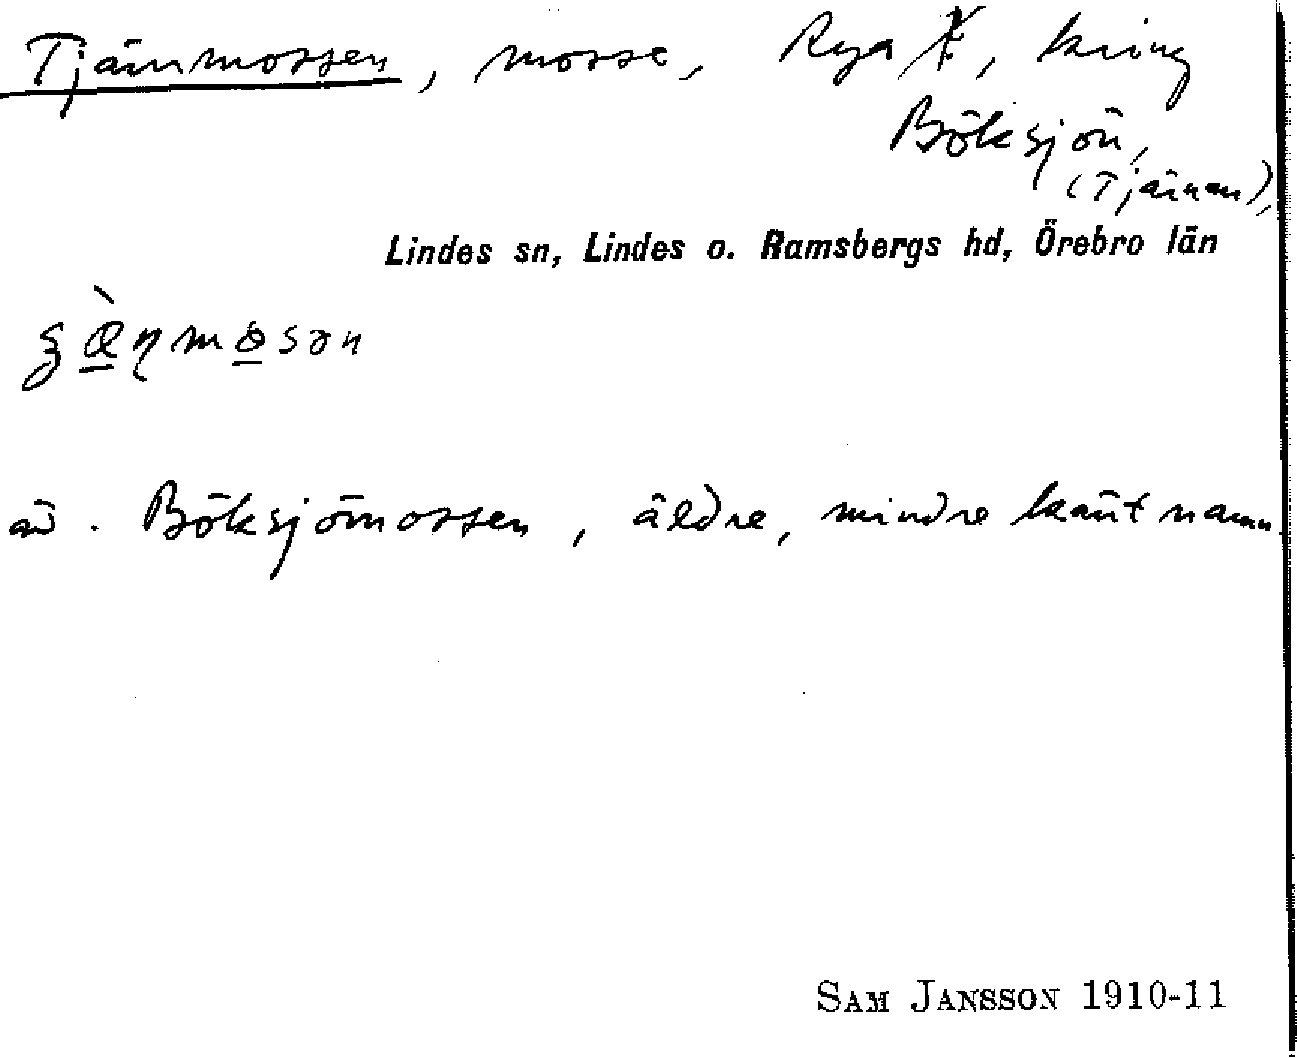 Tjärnmossen, mosse, Rya, kring
Böksjön,
(Tjärnan),
Lindes sn, Lindes o. Ramsbergs hd, Örebro län
av. Böksjömossen, äldre, mindre känt namn.
SAM JANSSON 1910-11